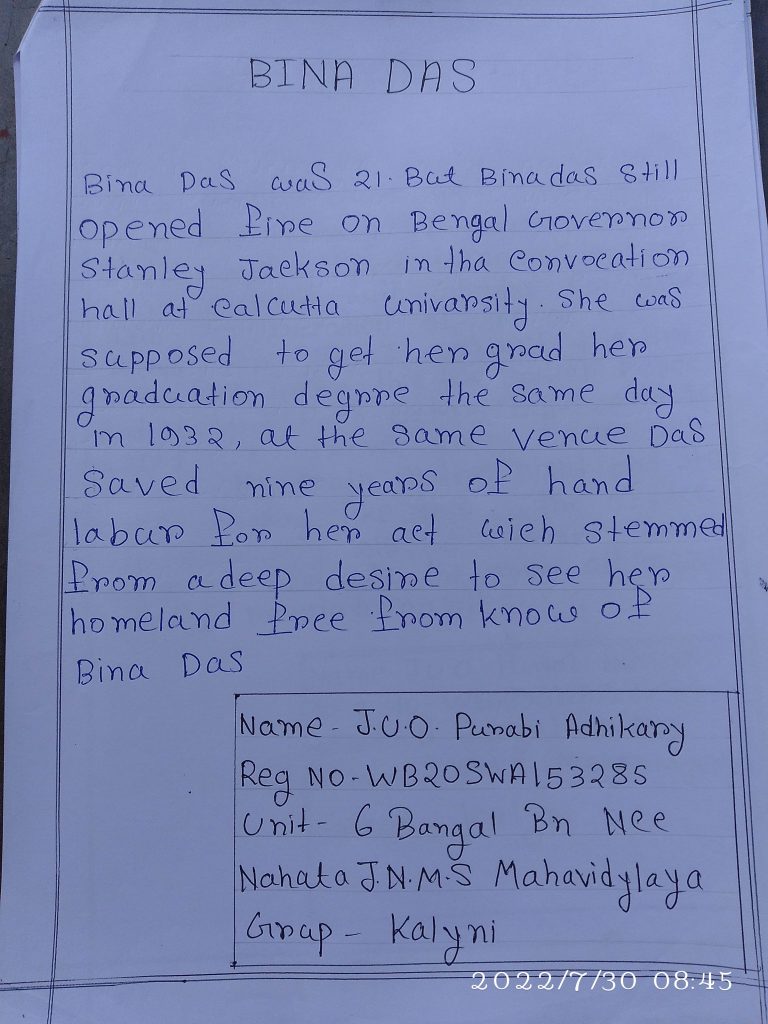 BINA DAS
Bina Das was 21. But Binadas still
opened fire on Bengal Governor
Stanley Jackson in tha Convocation
hall at Calcutta univarsity. She was
supposed to get her grad her
graduation degrre the same day
in 1932, at the same venue Das
Saved nine years of hand
labur for her act wich stemmed
from a deep desire to see her
homeland free from know of
Bina Das
Name - J.U.O. Purabi Adhikary
Reg No - WB20SWA153285
Unit - 6 Bangal Bn Ncc
Nahata J.N.M.S Mahavidylaya
Grup - Kalyni
2022/7/30 08:45